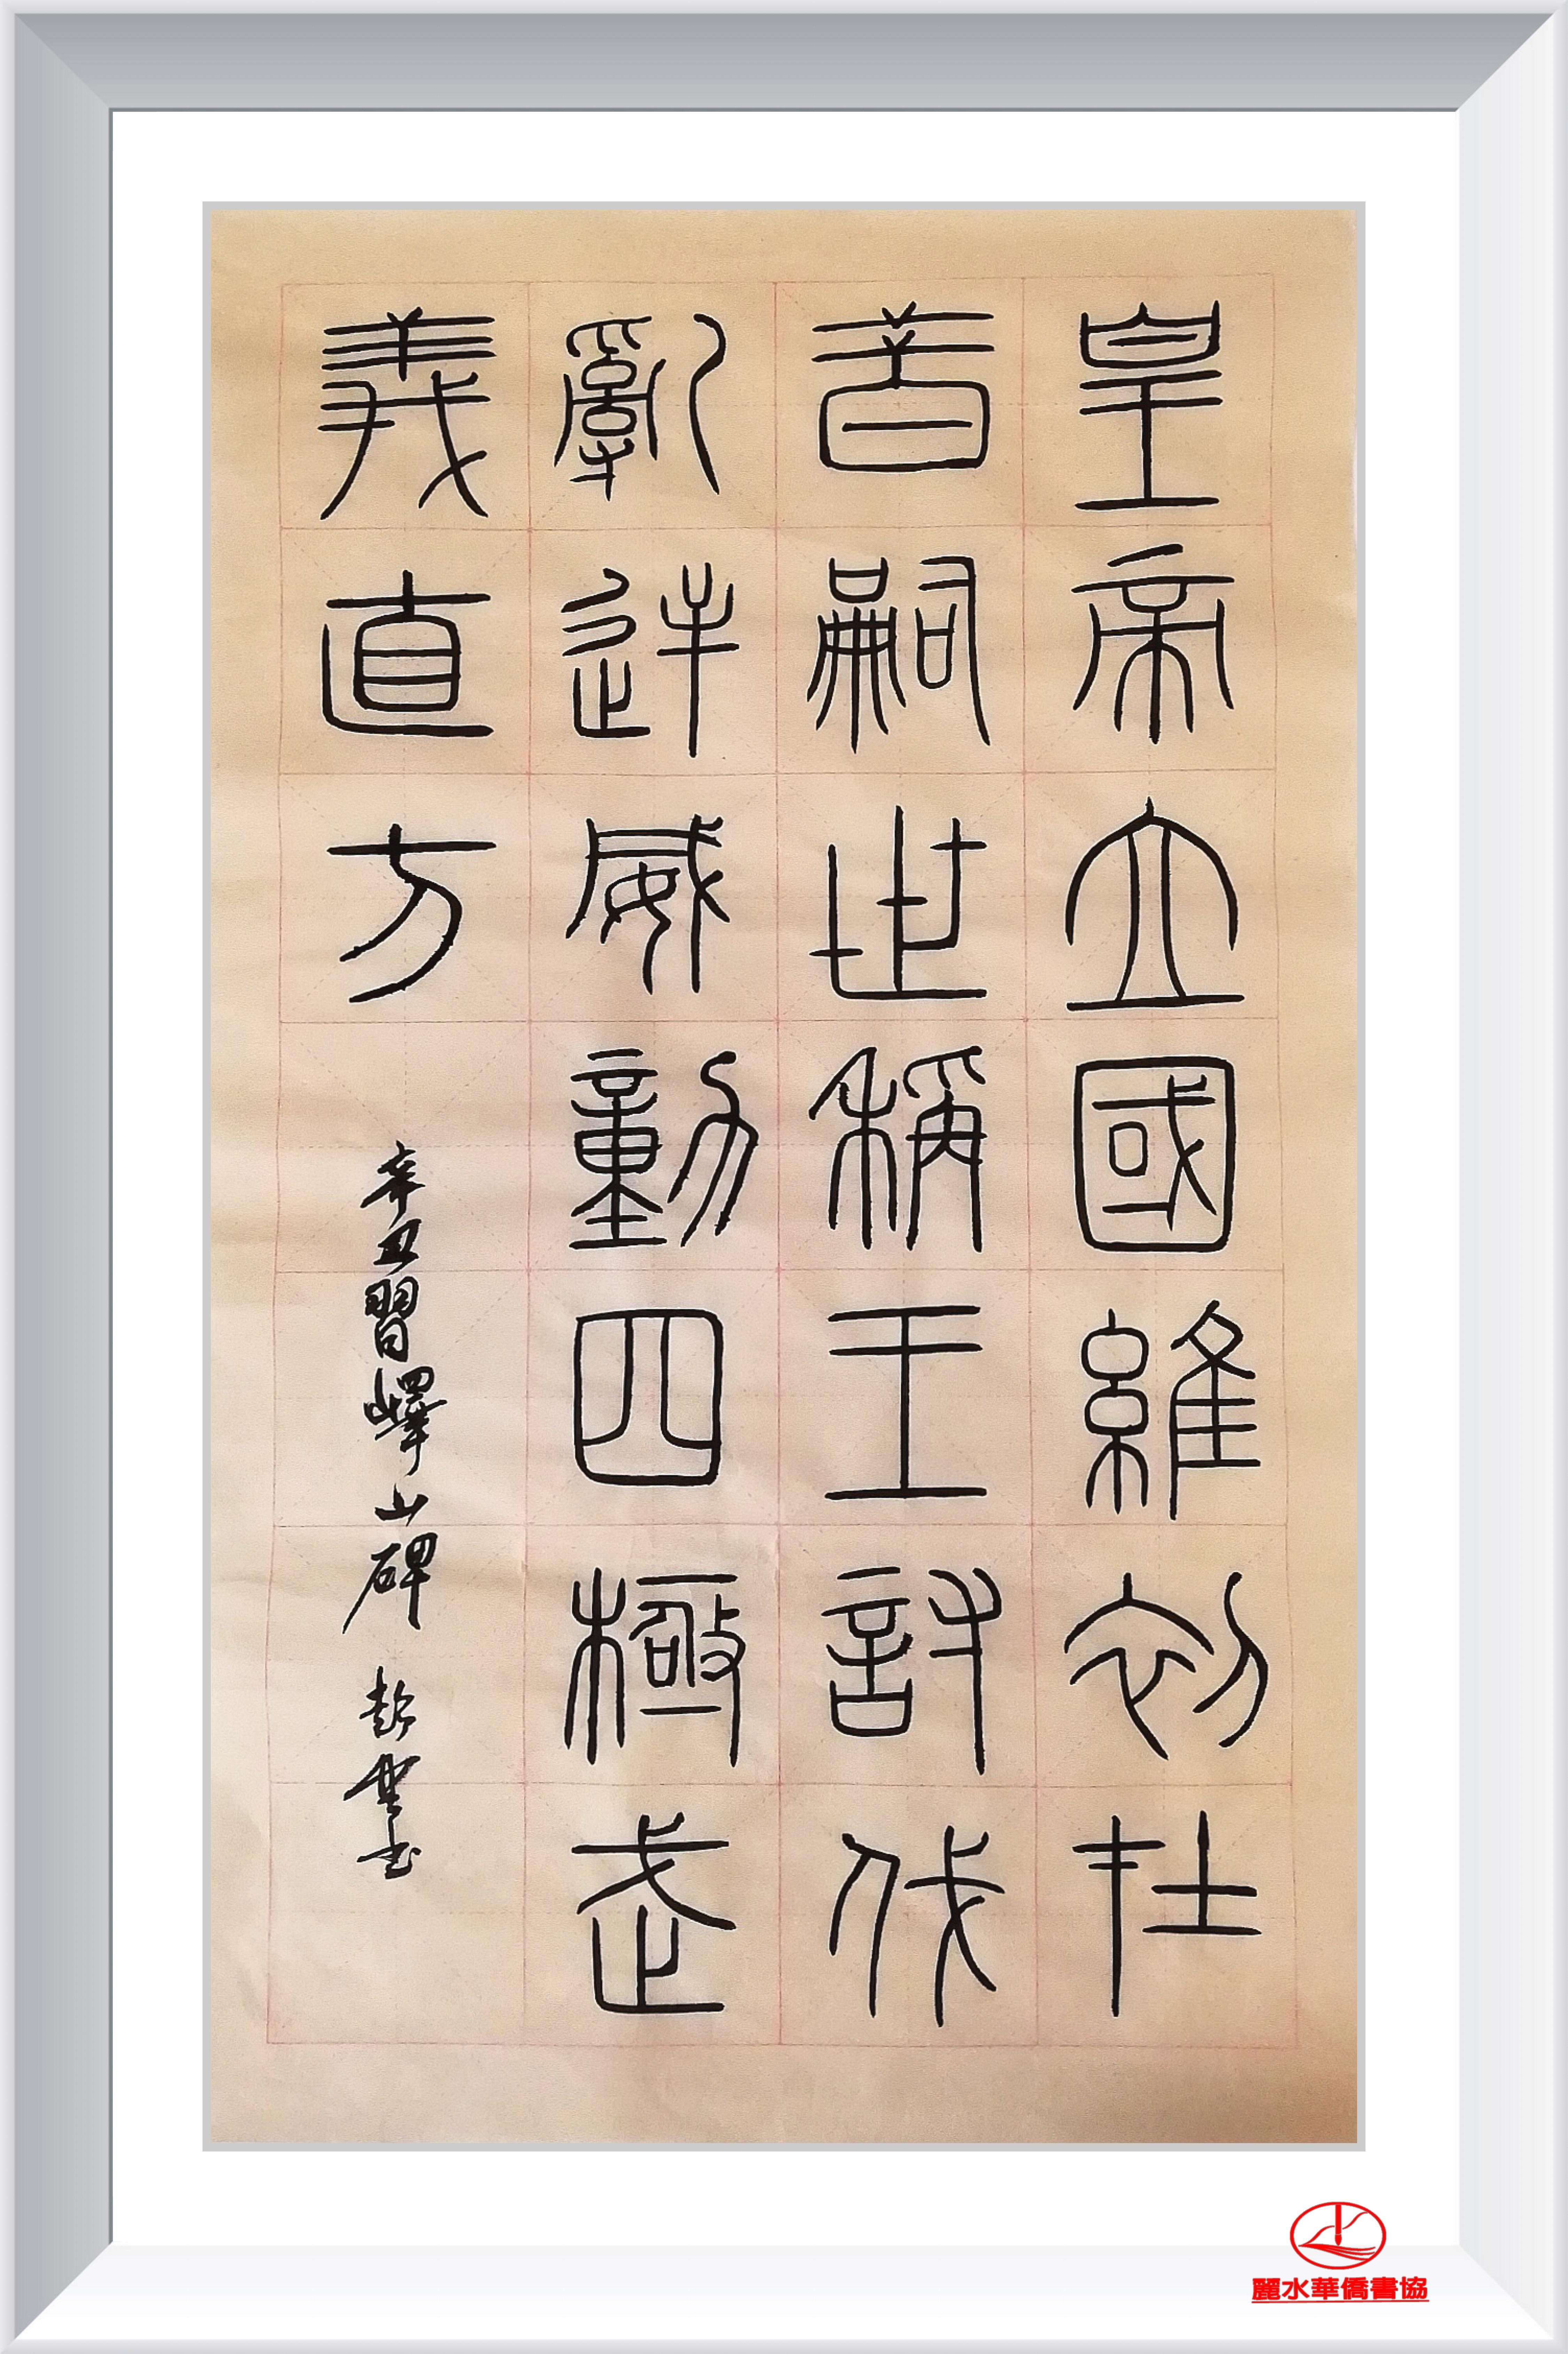 皇帝立國維初在
昔嗣世稱王討伐
亂逆威動四極武
義直方
辛丑習嶧山碑 书
麗水華僑書協